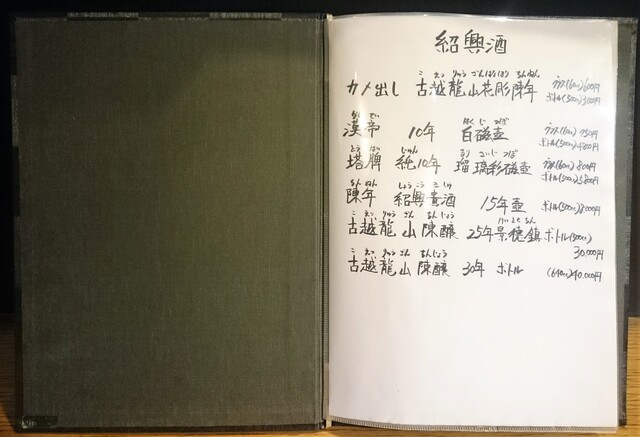 紹興酒
カメ出し 古越龍山花彫陳年 グラス(60cc)600円
ボトル(500cc)3,000円
漢帝 10年 白磁壺 グラス(60cc)
ボトル(500cc)
塔牌 純10年 瑠璃彩磁壺 グラス(60cc)800円
ボトル(500cc)5,800円
陳年 紹興貴酒 15年壺 ボトル(500cc)8,000円
古越龍山 陳醸 25年景徳鎮 ボトル(500cc)
30,000円
古越龍山 陳醸 30年 ボトル (640cc)40,000円